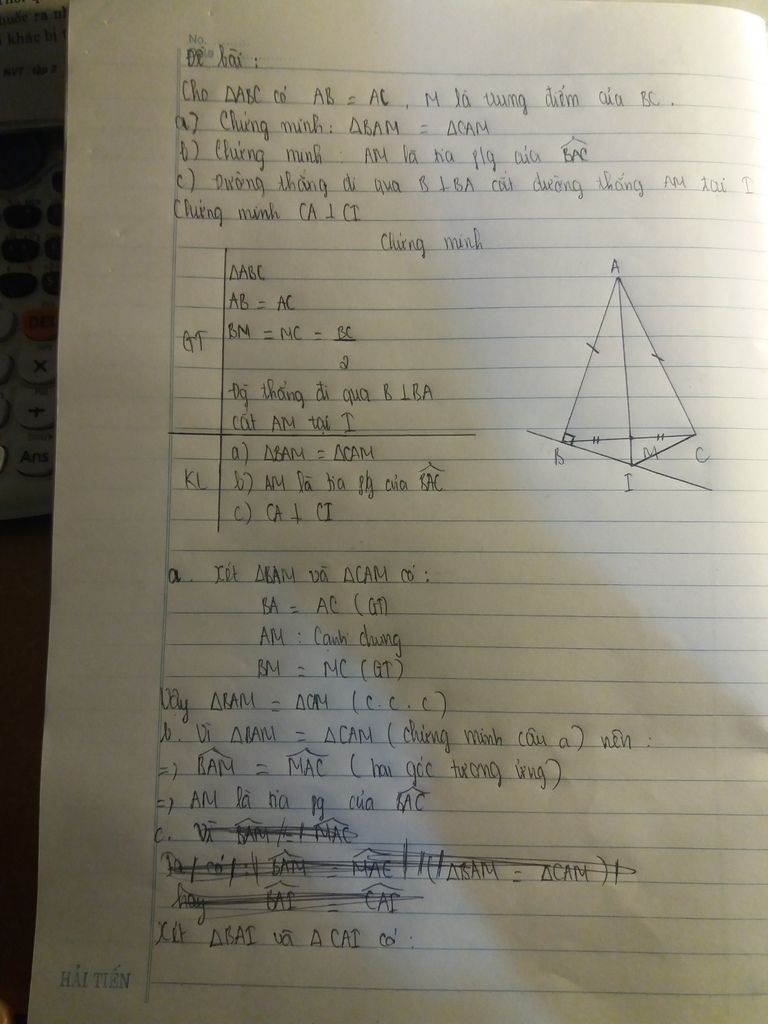 No.
Đề bài :
Cho ΔABC có AB = AC , M là trung điểm của BC .
a) Chứng minh : ΔBAM = ΔCAM
b) Chứng minh : AM là tia p/g của BAC
c) Đường thẳng đi qua B ⊥ BA cắt đường thẳng AM tại I
Chứng minh CA ⊥ CI
Chứng minh
GT
ΔABC
AB = AC
BM = MC = BC
2
Đg thẳng đi qua B ⊥ BA
cắt AM tại I
KL
a) ΔBAM = ΔCAM
b) AM là tia p/g của BAC
c) CA ⊥ CI
A
B
M
C
I
a. Xét ΔBAM và ΔCAM có :
BA = AC (GT)
AM : Cạnh chung
BM = MC (GT)
Vậy ΔBAM = ΔCAM (c.c.c)
b. Vì ΔBAM = ΔCAM ( chứng minh câu a) nên :
=> BAM = MAC ( hai góc tương ứng)
=> AM là tia pg của BAC
c. Vì BAM = MAC
Ta có : BAM = MAC ( ΔBAM = ΔCAM )
hay BAI = CAI
Xét ΔBAI và ΔCAI có :
HẢI TIẾN
DEL
×
+
Ans
NVT